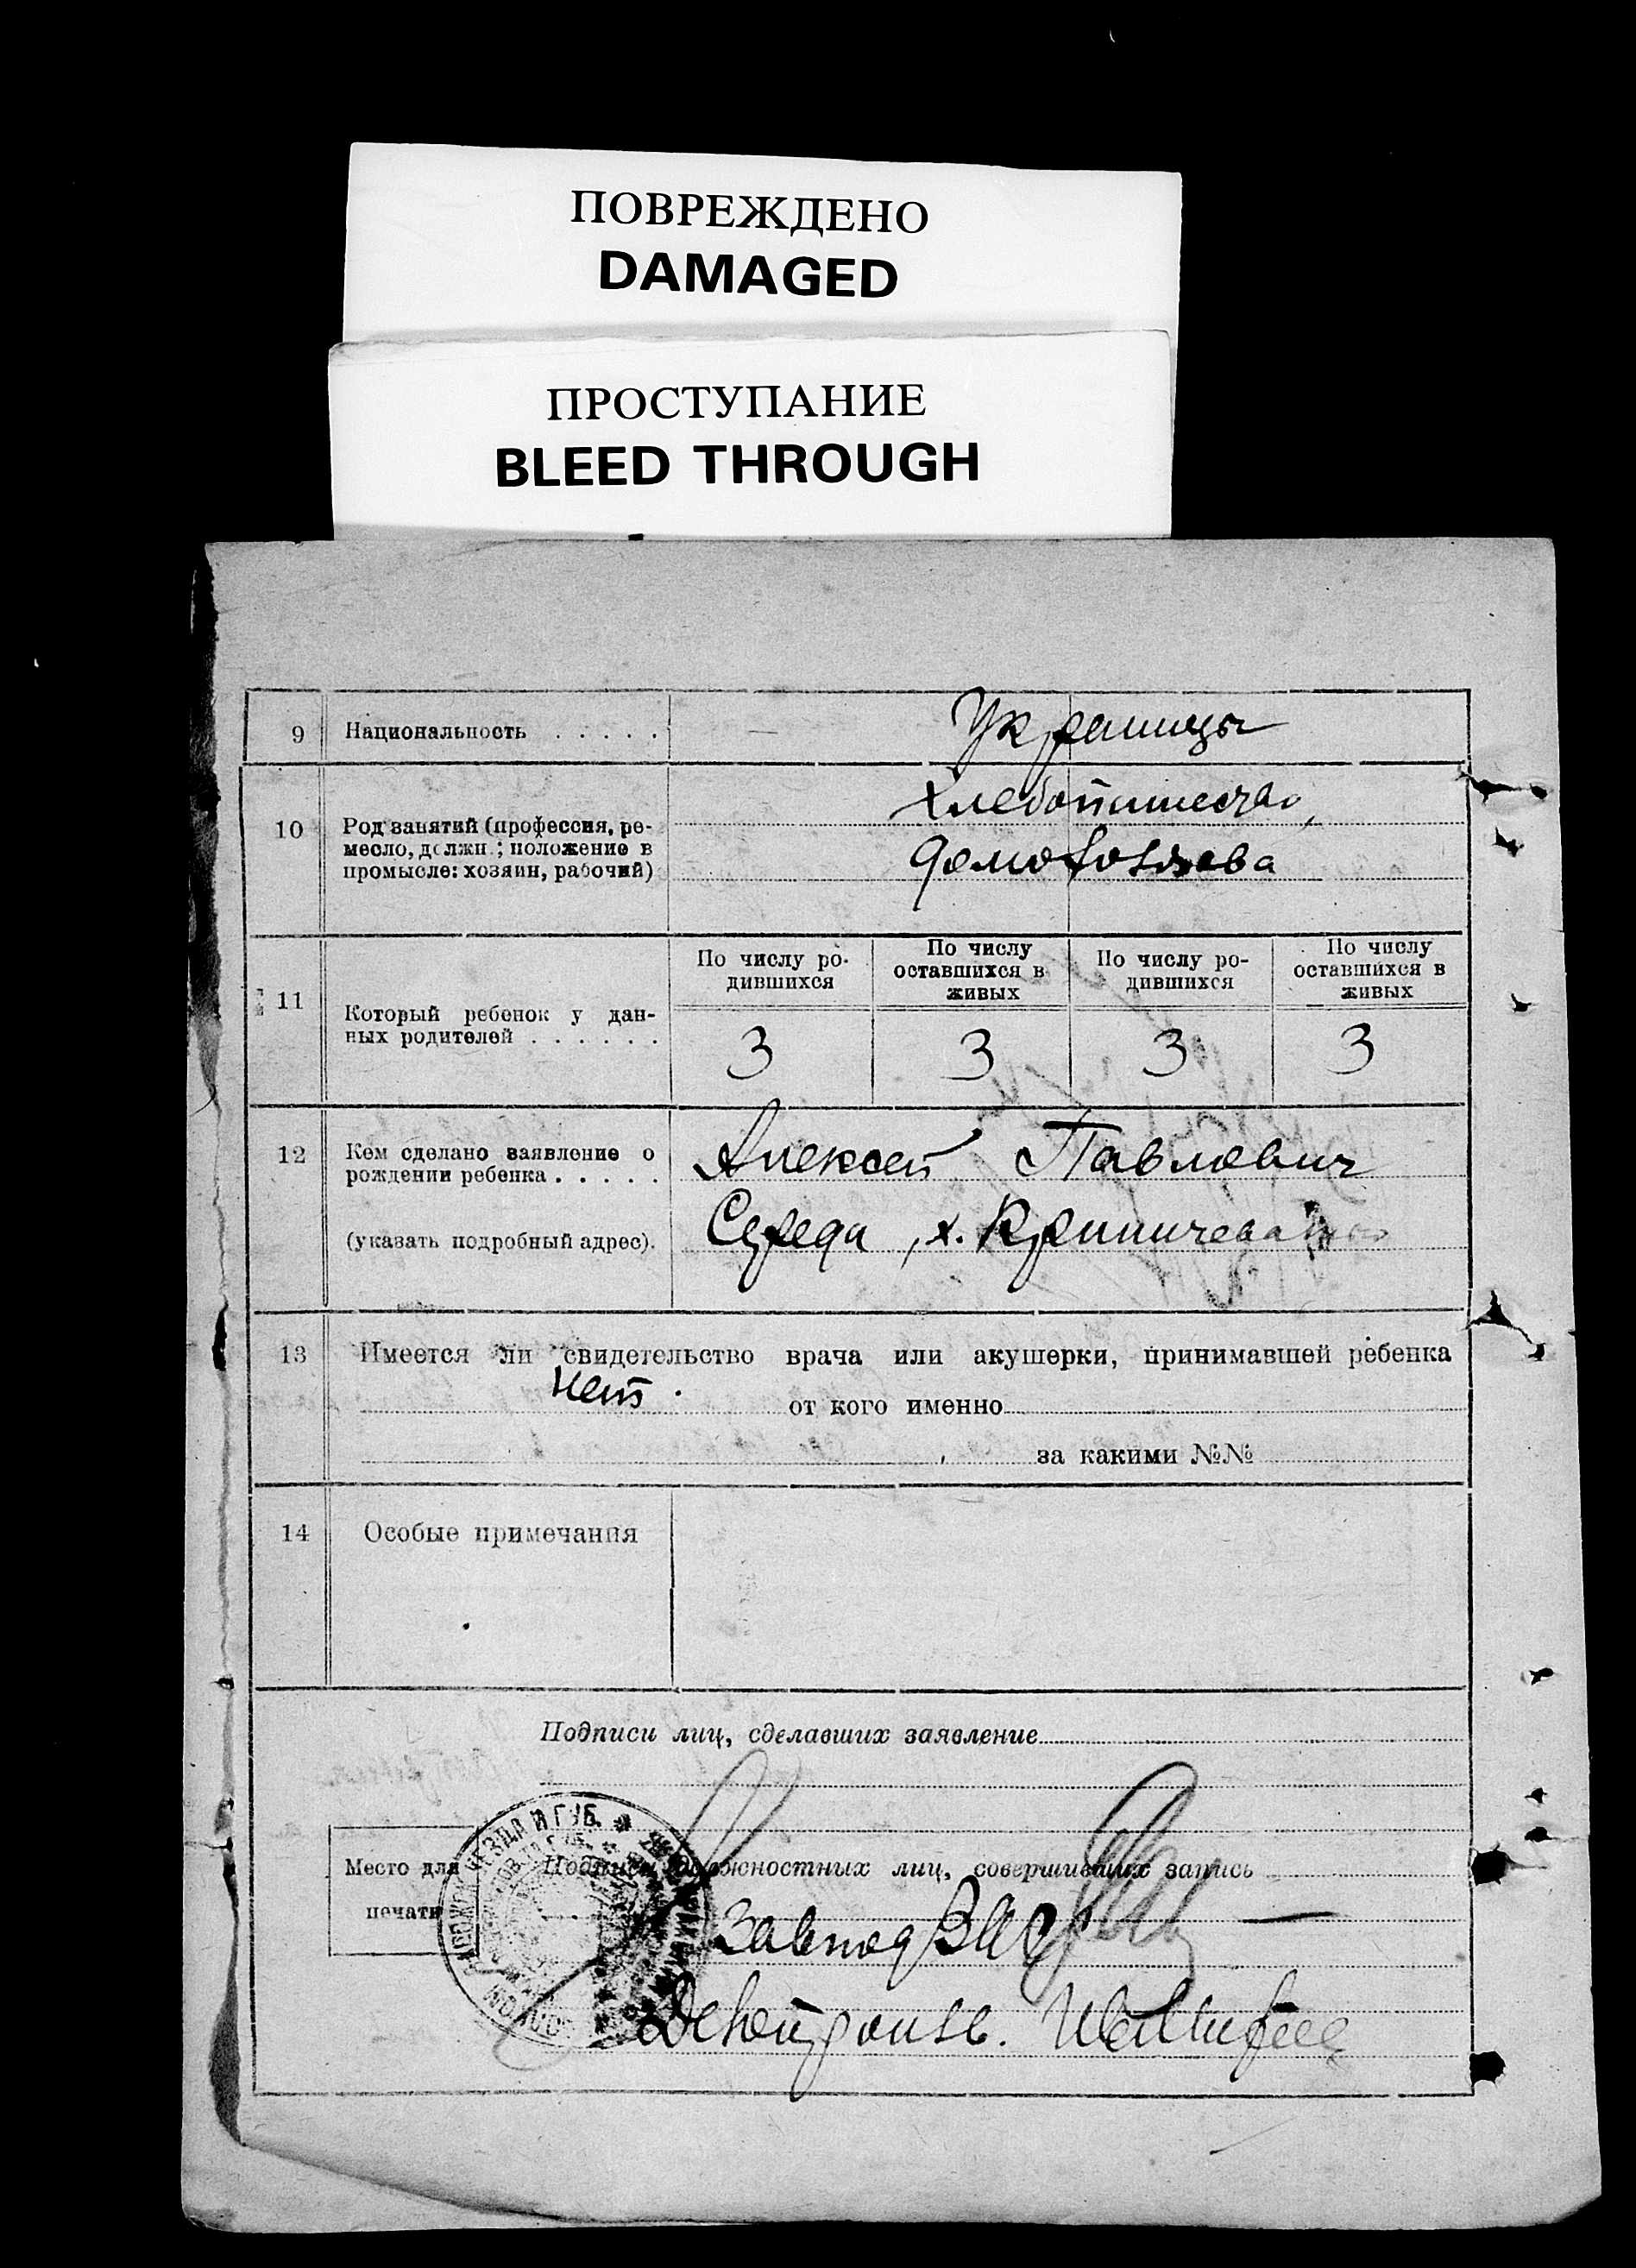 ПОВРЕЖДЕНО
DAMAGED
ПРОСТУПАНИЕ
BLEED THROUGH
9 Национальность . . . . . Украинцы
10 Род занятий (профессия, ре-
месло, должн.; положение в
промысле: хозяин, рабочий)
Хлебопашество,
11 Который ребенок у дан-
ных родителей . . . . . .
По числу ро-
дившихся
По числу
оставшихся в
живых
По числу ро-
дившихся
По числу
оставшихся в
живых
3 3 3 3
12 Кем сделано заявление о
рождении ребенка . . . . .
(указать подробный адрес).
Алексей Павлович
Середа, х.
13 Имеется ли свидетельство врача или акушерки, принимавшей ребенка
Нет. от кого именно
за какими №№
14 Особые примечания
Подписи лиц, сделавших заявление
Место для
печати
УЕЗДА И ГУБ.
Подписи должностных лиц, совершивших запись